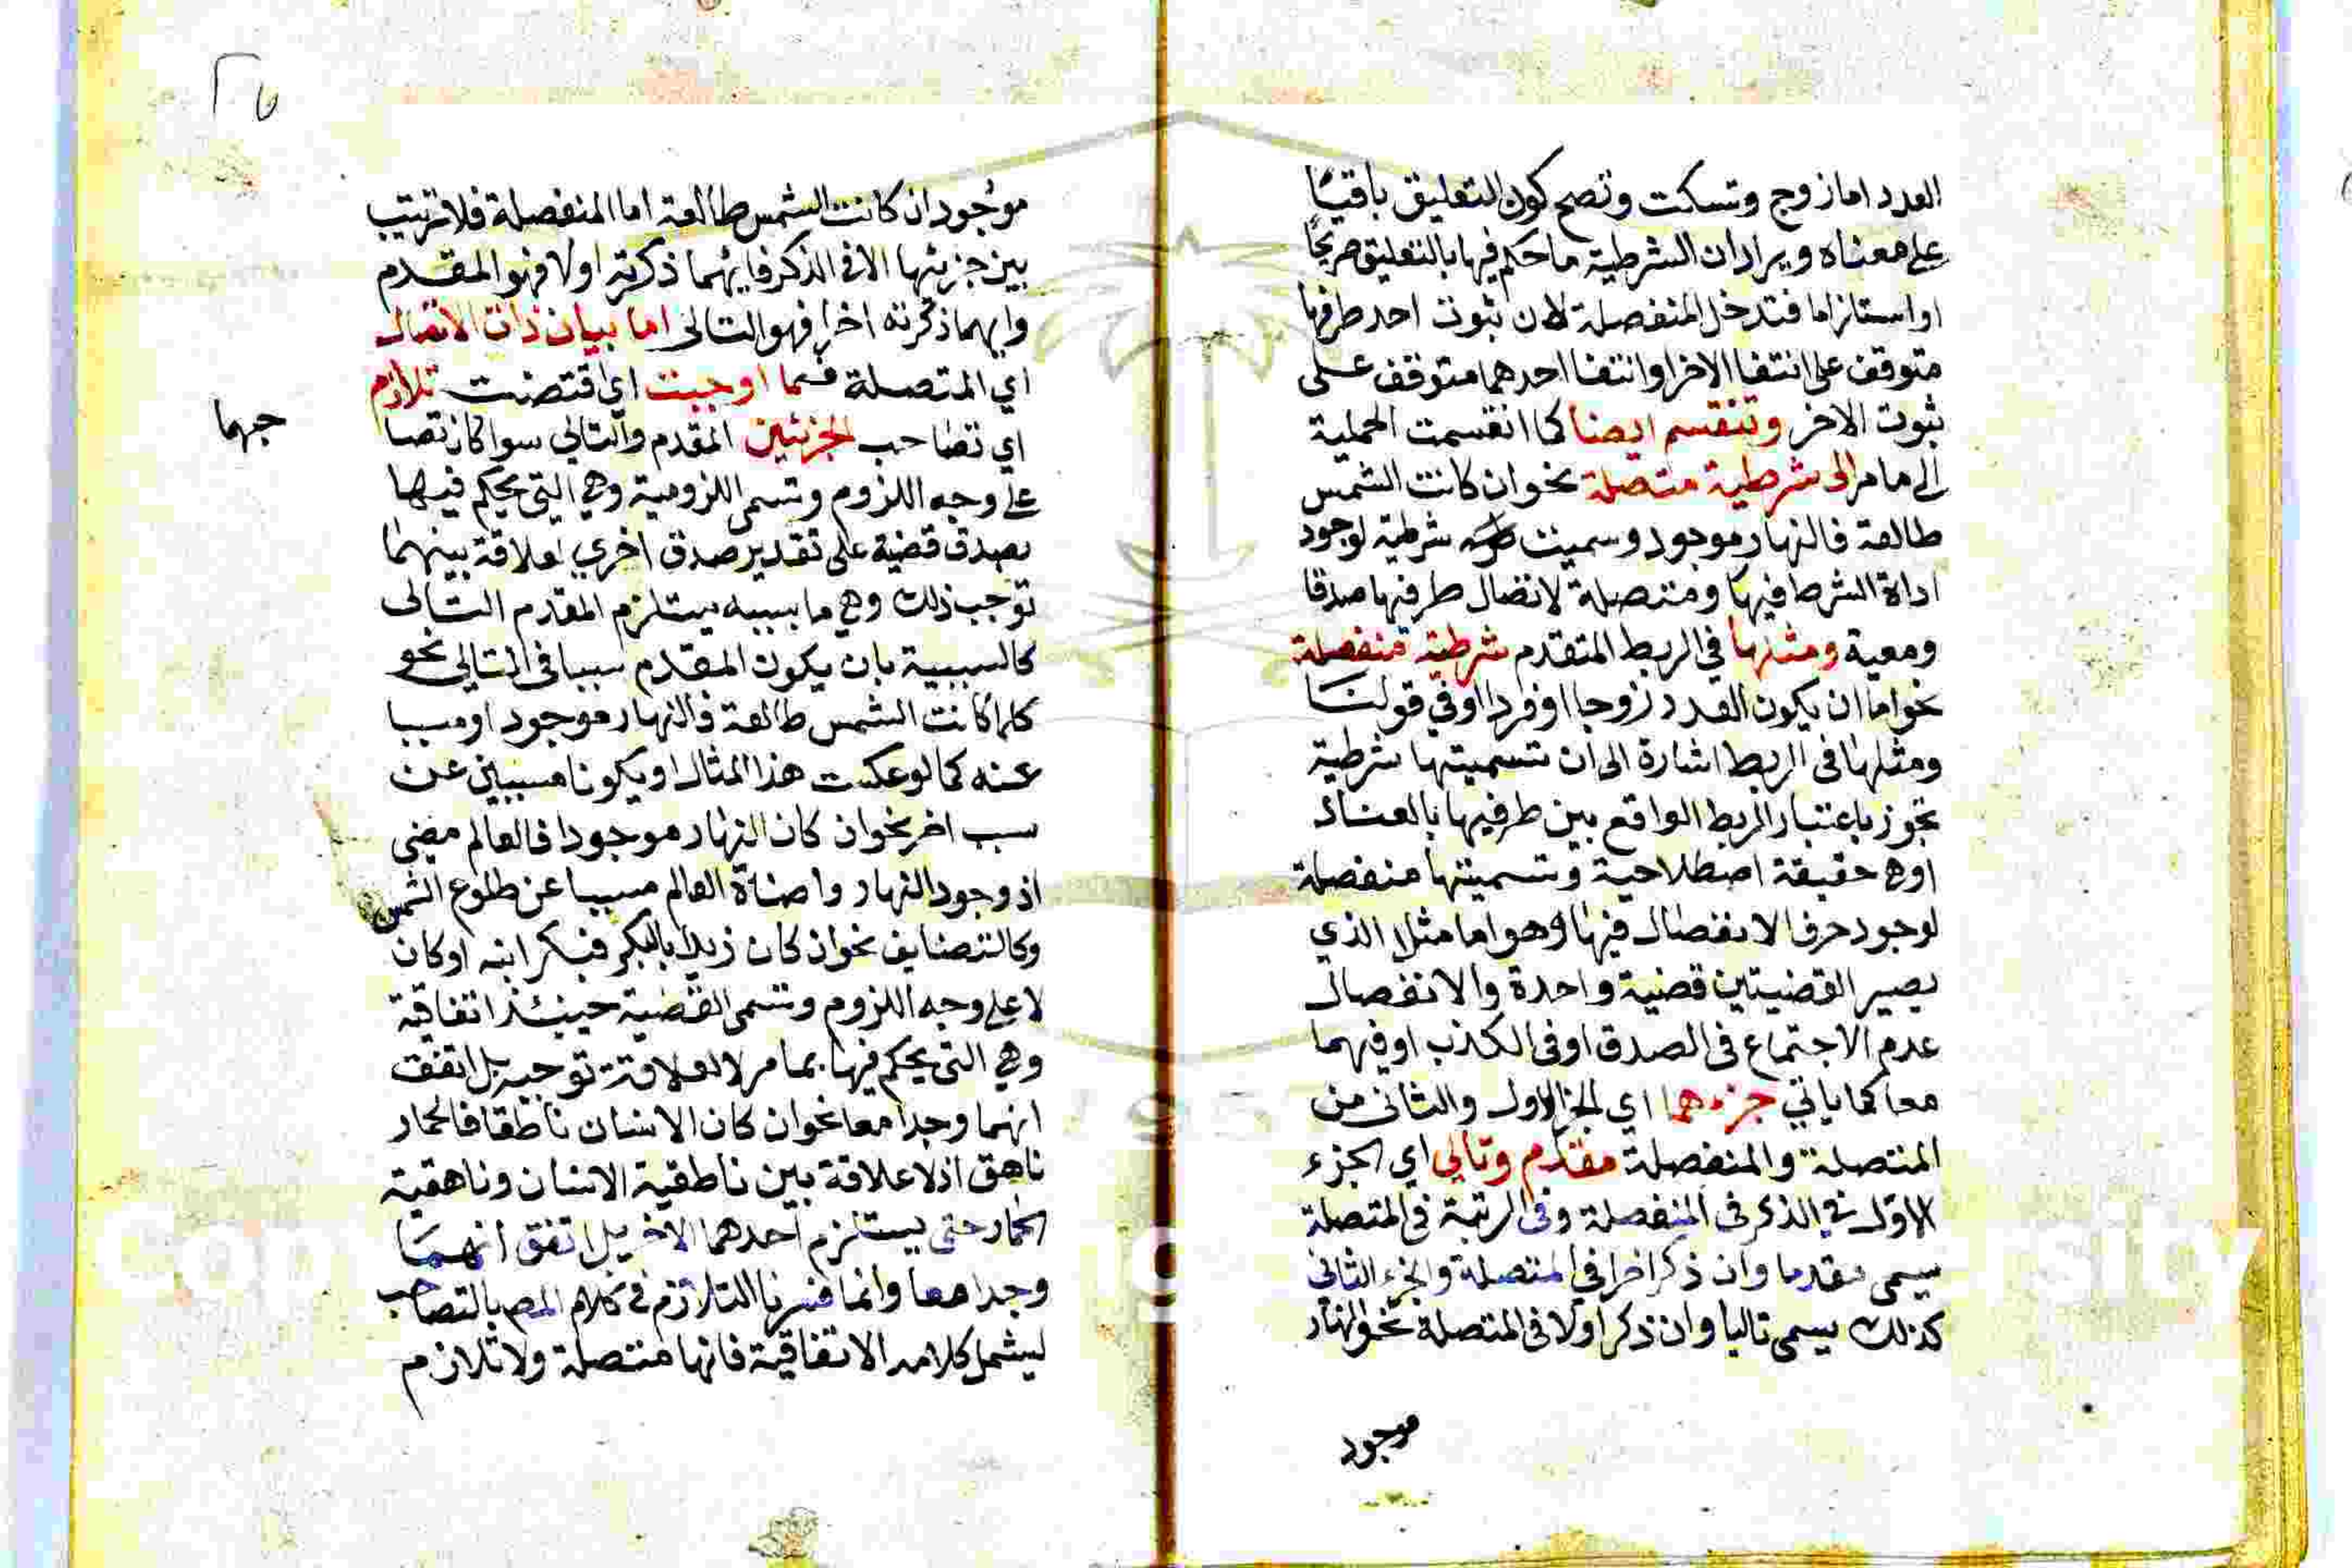 العدد اما زوج وتسكت وتصح كون التعليق باقيا
على معناه ويراد ان الشرطية ما حكم فيها بالتعليق صريحا
او استلزاما فتدخل المنفصلة لان ثبوت احد طرفيها
متوقف على انتفا الاخر او انتفا احدهما متوقف على
ثبوت الاخر وتنقسم ايضا كما انقسمت الحملية
الى ما مر الى شرطية متصلة نحو ان كانت الشمس
طالعة فالنهار موجود وسميت شرطية لوجود
اداة الشرط فيها ومتصلة لاتصال طرفيها صدقا
ومعية ومثلها في الربط المتقدم شرطية منفصلة
نحو اما ان يكون العدد زوجا او فردا وفي قولنا
ومثلها في الربط اشارة الى ان تسميتها شرطية
تجوز باعتبار الربط الواقع بين طرفيها بالعناد
او هي حقيقة اصطلاحية وتسميتها منفصلة
لوجود حرف الانفصال فيها وهو اما مثلا الذي
يصير القضيتين قضية واحدة والانفصال
عدم الاجتماع في الصدق او في الكذب او فيهما
معا كما ياتي جزءهما اي الجزء الاول والثاني من
المتصلة والمنفصلة مقدم وتالي اي الجزء
الاول في الذكر في المنفصلة وفي الرتبة في المتصلة
يسمى مقدما وان ذكر اخرا في المتصلة والجزء الثاني
كذلك يسمى تاليا وان ذكر اولا في المتصلة نحو النهار
موجود
٢٥
موجود ان كانت الشمس طالعة اما المنفصلة فلا ترتيب
بين جزئيها الا في الذكر فايهما ذكرته اولا فهو المقدم
وايهما ذكرته اخرا فهو التالي اما بيان ذات الاتصال
اي المتصلة فما اوجبت اي اقتضت تلازم
اي تصاحب الجزئين المقدم والتالي سوا كان تصا
جهما
على وجه اللزوم وتسمى اللزومية وهي التي يحكم فيها
بصدق قضية على تقدير صدق اخري لعلاقة بينهما
توجب ذلك وهي ما بسببه يستلزم المقدم التالي
كالسببية بان يكون المقدم سببا في التالي نحو
كلما كانت الشمس طالعة فالنهار موجود او مسببا
عنه كما لو عكست هذا المثال او يكونا مسببين عن
سبب اخر نحو ان كان النهار موجودا فالعالم مضي
اذ وجود النهار واضاة العالم مسببا عن طلوع الشمس
وكالتضايف نحو ان كان زيد ابا لبكر فبكر ابنه او كان
لا على وجه اللزوم وتسمى القضية حينئذ اتفاقية
وهي التي يحكم فيها بما مر لا لعلاقة توجبه بل اتفق
انهما وجدا معا نحو ان كان الانسان ناطقا فالحمار
ناهق اذ لا علاقة بين ناطقية الانسان وناهقية
الحمار حتى يستلزم احدهما الاخر بل اتفق انهما
وجدا معا وانما فسرنا التلازم في كلام المص بالتصاحب
ليشمل كلامه الاتفاقية فانها متصلة ولا تلازم